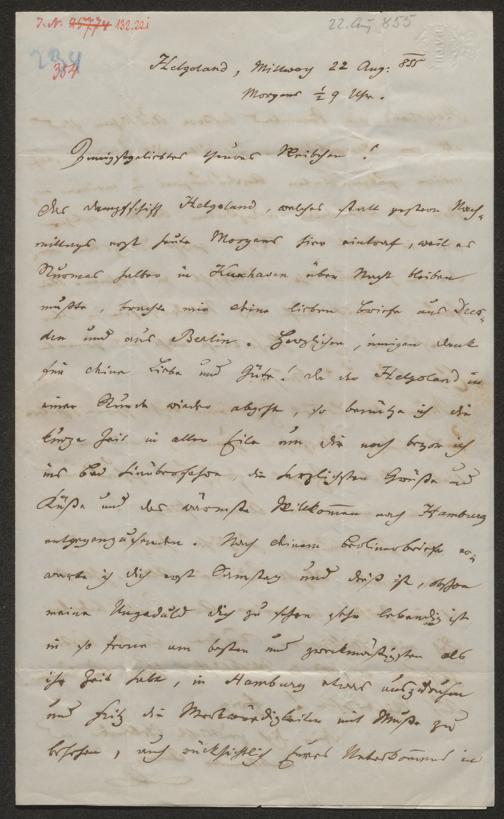 J. N. 85774 132.221
22. Aug 855
354
Helgoland, Mittwoch 22 Aug: 855
Morgens ½ 9 Uhr.
Innigstgeliebtes theures Weibchen!
Das Dampfschiff Helgoland, welches statt gestern Nach-
mittags erst heute Morgens hier eintraf, weil es
Sturmes halber in Kuxhaven über Nacht bleiben
mußte, brachte mir deine lieben Briefe aus Dres-
den und aus Berlin. Herzlichen, innigen Dank
für deine Liebe und Güte! Da der Helgoland in
einer Stunde wieder abgeht, so benütze ich die
kurze Zeit in aller Eile um dir noch bevor ich
ins Bad hinüberfahre, die herzlichsten Grüße und
Küße und das wärmste Willkommen nach Hamburg
entgegenzusenden. Nach deinem Berlinerbriefe er-
warte ich dich erst Samstag und dieß ist, obschon
meine Ungeduld dich zu sehen sehr lebendig ist
in so ferne am besten und zweckmäßigsten als
ihr Zeit habt, in Hamburg etwas auszuruhen
und Fritz die Merkwürdigkeiten mit Muße zu
besehen, auch rücksichtlich Eures Unterkommens in